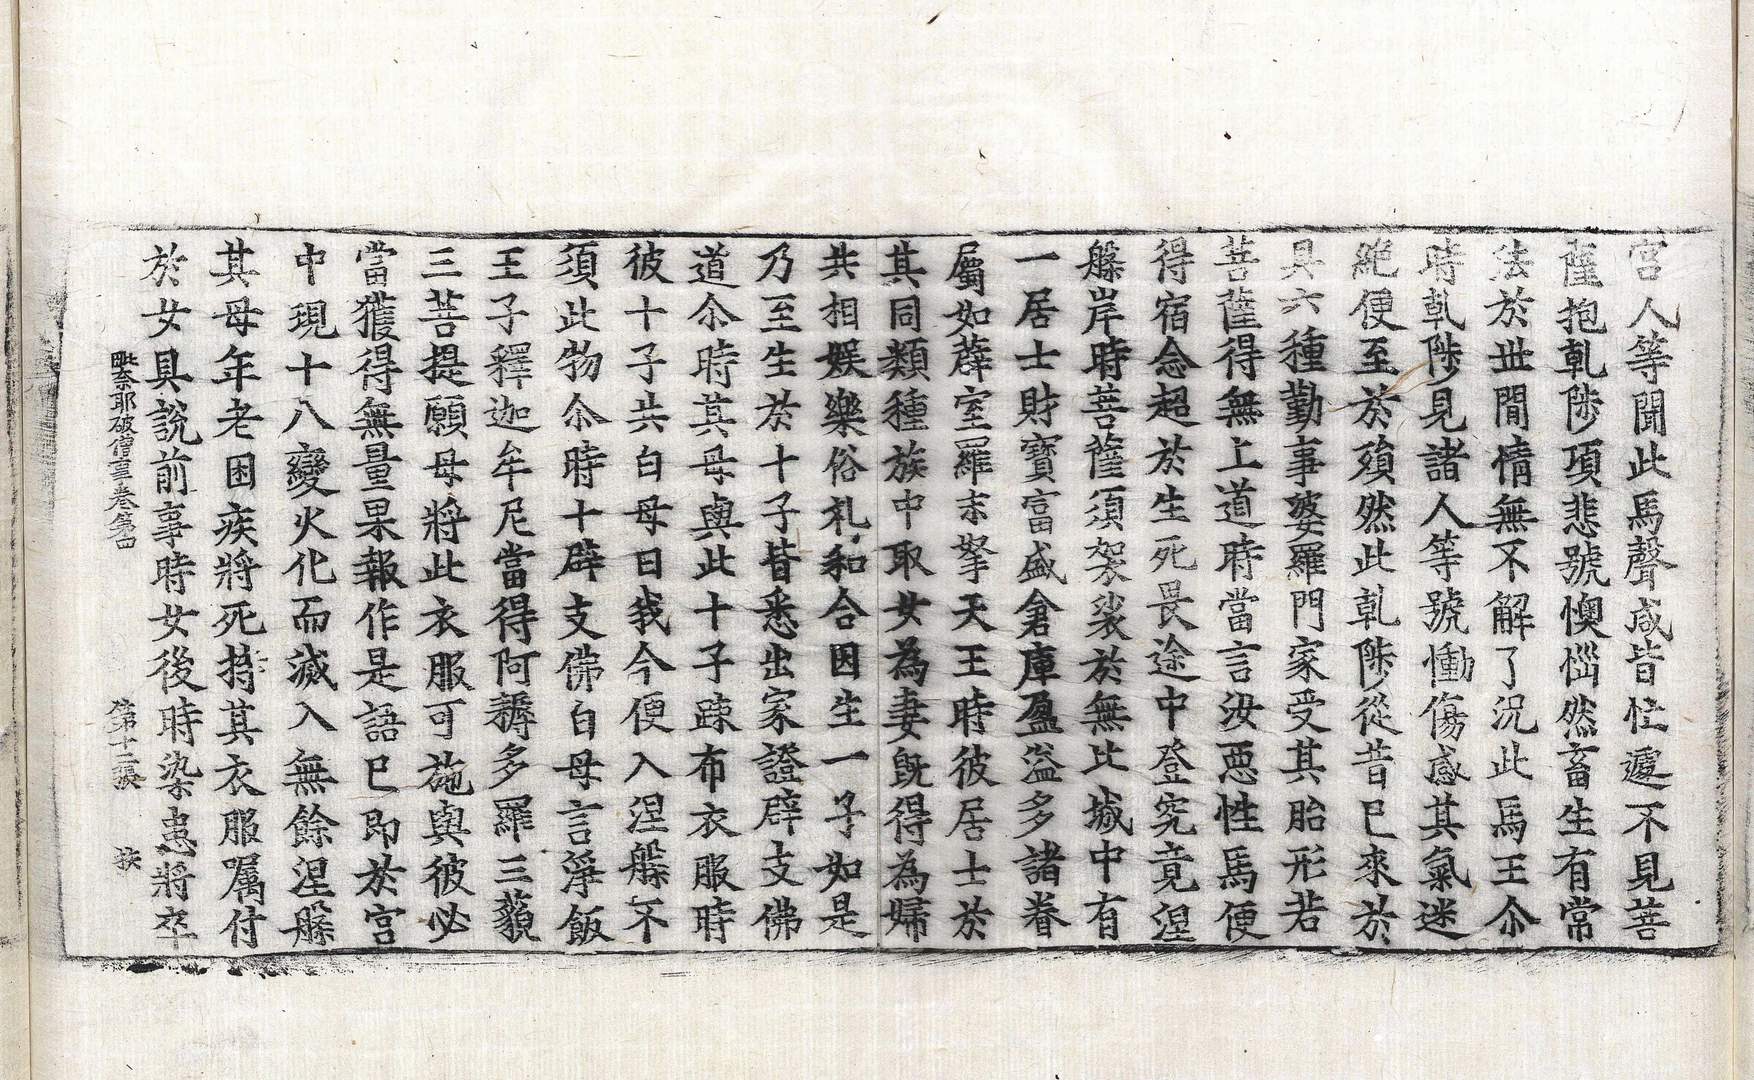 宮人等聞此馬聲咸皆忙遽不見菩
薩抱乹陟項悲號懊惱然畜生有常
法於世間情無不解了況此馬王尒
時乹陟見諸人等號慟傷感其氣迷
絕便至於殞然此乹陟從昔已來於
具六種勤事婆羅門家受其胎形若
菩薩得無上道時當言汝惡性馬便
得宿念超於生死畏途中登究竟涅
槃岸時菩薩須袈裟於無比城中有
一居士財寶富盛倉庫盈溢多諸眷
屬如薜室羅末拏天王時彼居士於
其同類種族中取女為妻旣得為婦
共相娛樂俗礼和合因生一子如是
乃至生於十子皆悉出家證辟支佛
道尒時其母與此十子踈布衣服時
彼十子共白母曰我今便入涅槃不
須此物尒時十辟支佛白母言淨飯
王子釋迦牟尼當得阿耨多羅三藐
三菩提願母將此衣服可施與彼必
當獲得無量果報作是語已即於宮
中現十八變火化而滅入無餘涅槃
其母年老困疾將死持其衣服囑付
於女具說前事時女後時染患將卒
毗奈耶破僧事卷第四 第十二張 枝